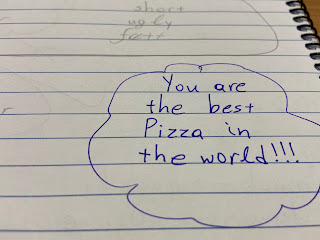 short
ugly
You are
the best
Pizza in
the world!!!